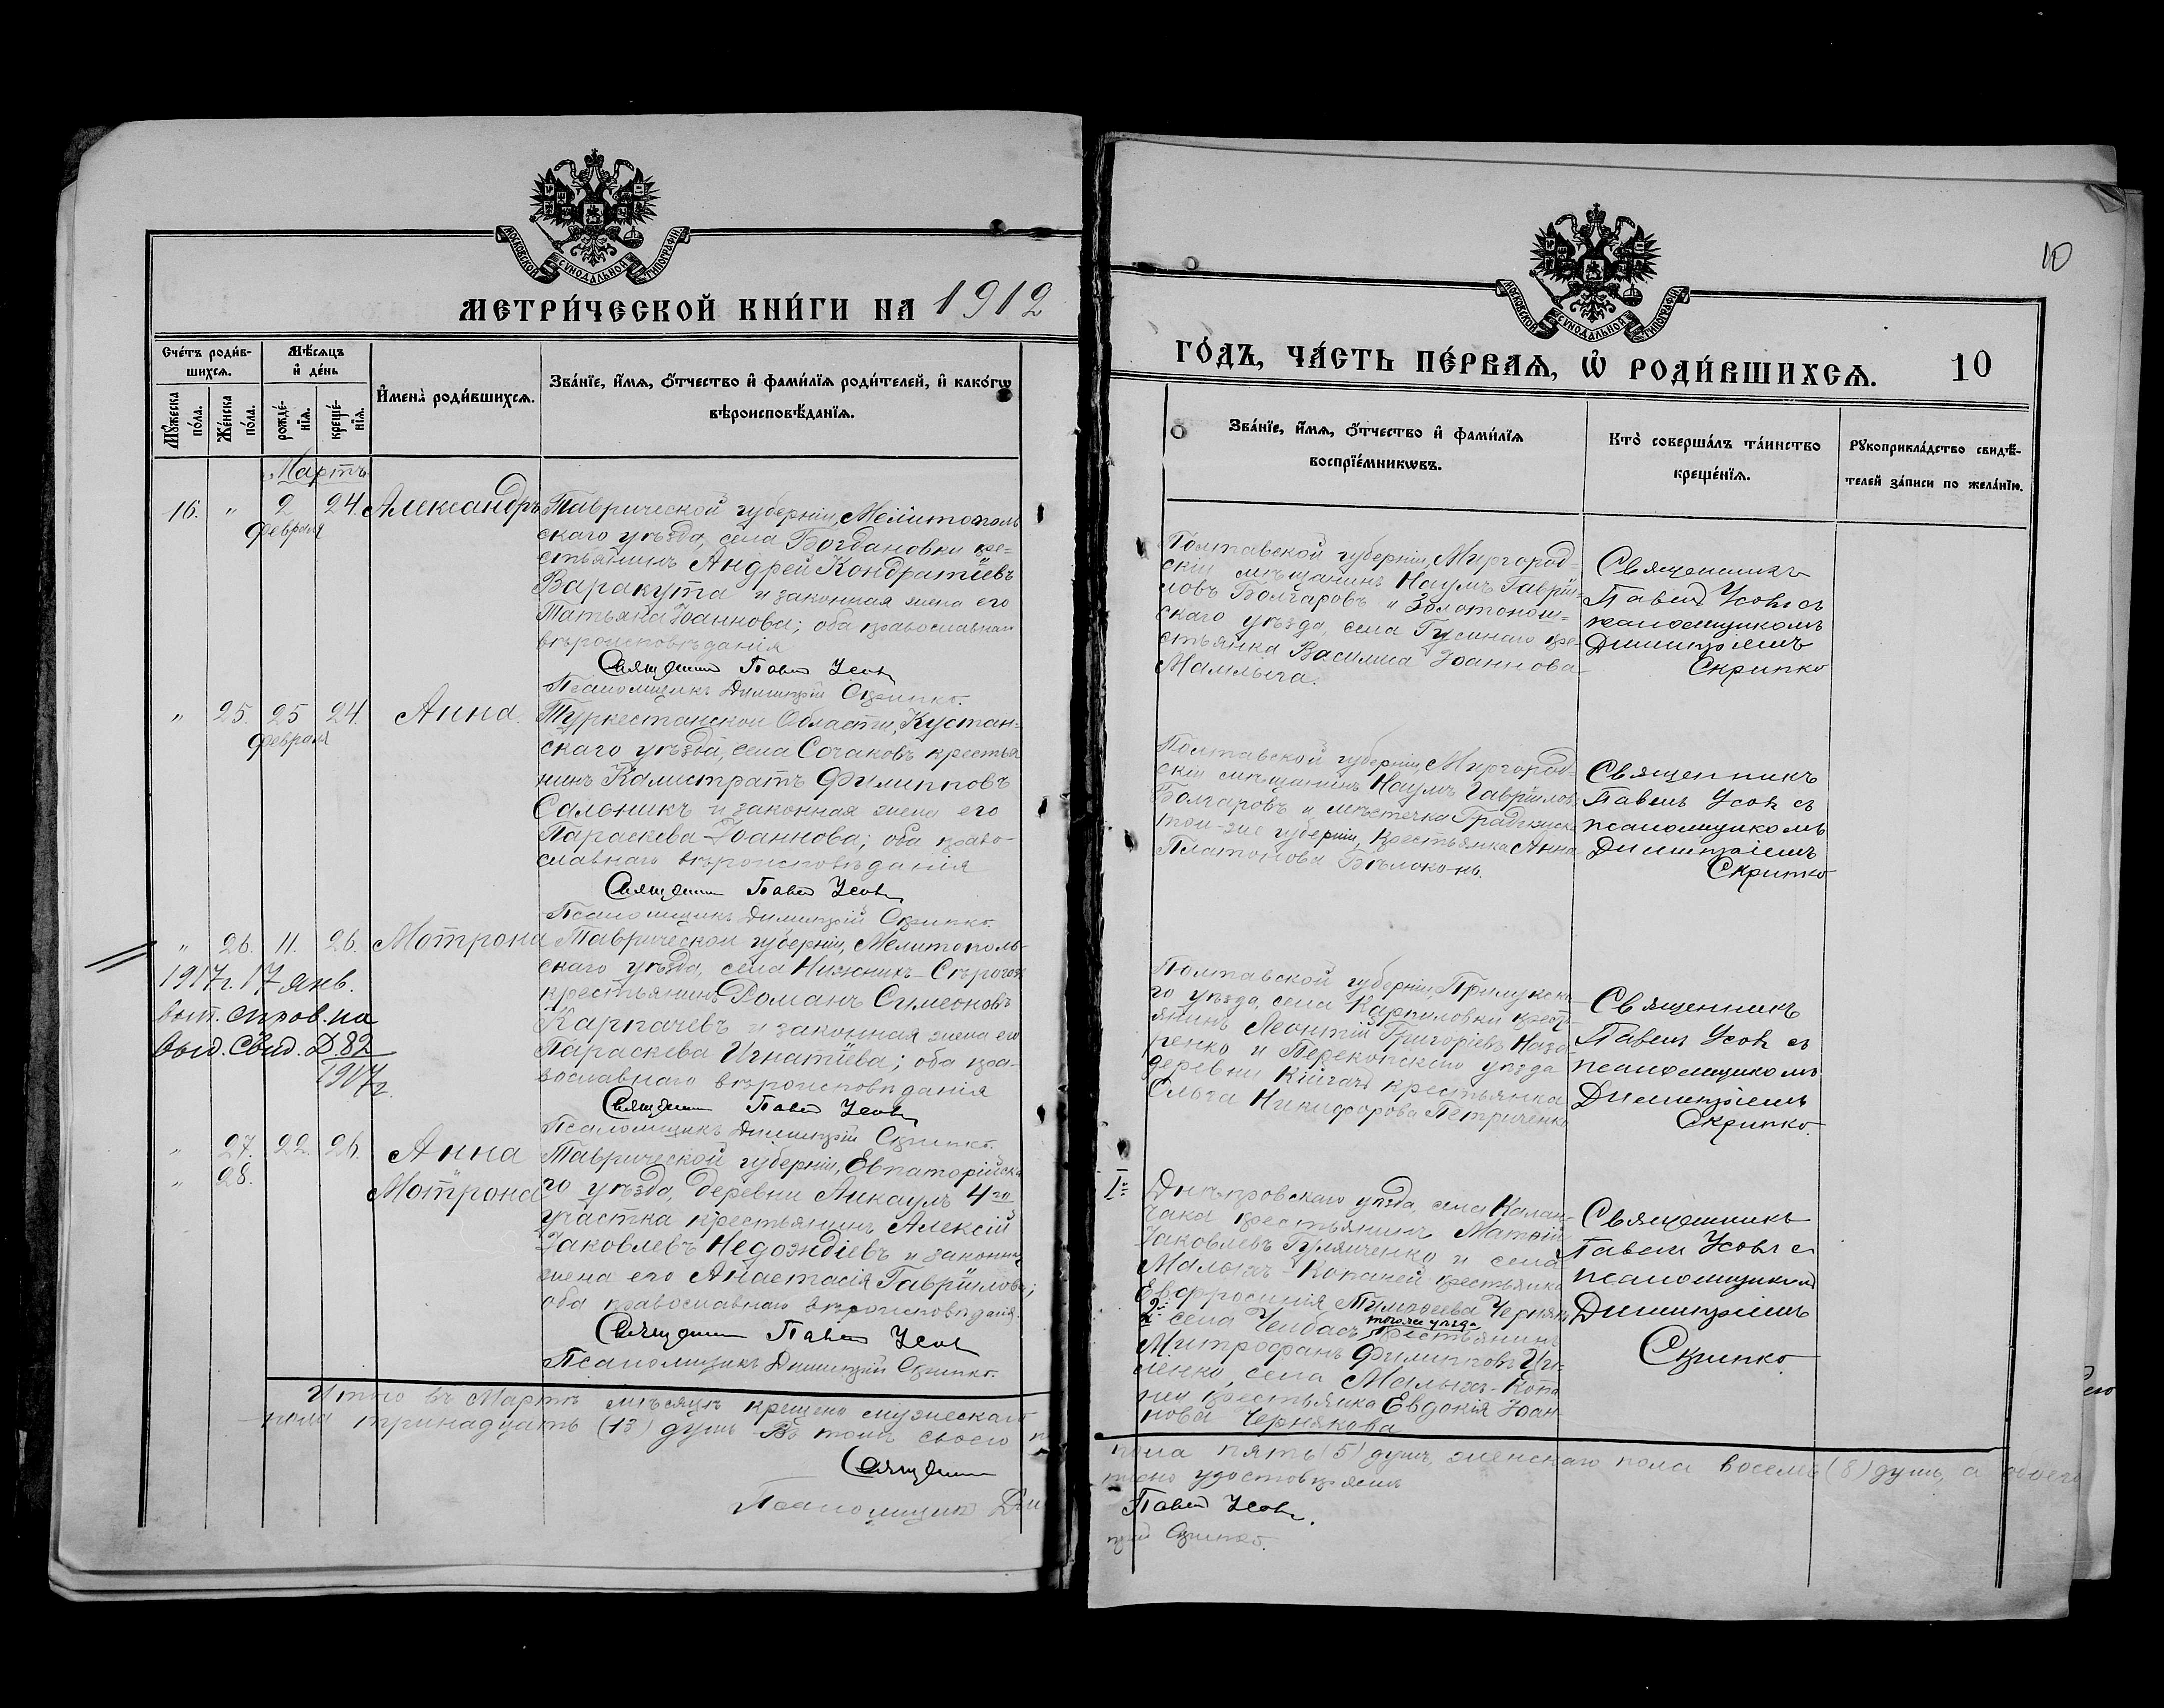 МОСКОВСКОЙ СѴНОДАЛЬНОЙ ТИПОГРАФІИ
МЕТРИ́ЧЕСКОЙ КНИ́ГИ НА 1912
Сче́тъ роди́в-
шихсѧ.
Мѣ́сѧцъ
и҆ де́нь
Мꙋ́жеска по́ла.
Же́нска по́ла.
рожде́-
нїѧ.
креще́-
нїѧ.
И҆мена̀ роди́вшихсѧ.
Зва́нїе, и҆́мѧ, ѻ҆́тчество и҆ фами́лїѧ роди́телей, и҆ како́гѡ
вѣроисповѣ́данїѧ.
Мартъ
16. " 2 24. Александръ
Февраля
Таврической губерніи, Мелитополь
скаго уѣзда, села Богдановки кре=
стьянинъ Андрей Кондратіевъ
Варакута и законная жена его
Татьяна Іоаннова; оба православнаго
вѣроисповѣданія
Священникъ Павелъ Усовъ
Псаломщикъ Димитрій Скрипко.
" 25. 25 24. Анна.
Февраля
Туркестанской Области, Кустан=
скаго уѣзда, села Сочаковъ крестья
нинъ Калистратъ Филипповъ
Сальникъ и законная жена его
Параскева Іоаннова; оба право-
славнаго вѣроисповѣданія
Священникъ Павелъ Усовъ
Псаломщикъ Димитрій Скрипко.
" 26. 11. 26. Мотрона
1917г. 17 янв.
выт. справ. на
выд. свид. № 82
1917г.
Таврической губерніи, Мелитополь-
скаго уѣзда, села Нижнихъ-Сѣрогозъ
крестьянинъ Романъ Симеоновъ
Карпачевъ и законная жена его
Параскева Игнатіева; оба пра-
вославнаго вѣроисповѣданія
Священникъ Павелъ Усовъ
Псаломщикъ Димитрій Скрипко.
" 27. 22. 26. Анна
" 28. Мотрона
Таврической губерніи, Евпаторійска
го уѣзда, деревни Анкаулъ 4го
участка крестьянинъ Алексій
Іаковлевъ Недождіевъ и законная
жена его Анастасія Гавріилова;
оба православнаго вѣроисповѣданія.
Священникъ Павелъ Усовъ
Псаломщикъ Димитрій Скрипко.
Итого въ Мартѣ мѣсяцѣ крещено мужескаго
пола тринадцать (13) душъ Въ томъ своего
Священникъ
Псаломщикъ Дим
10
МОСКОВСКОЙ СѴНОДАЛЬНОЙ ТИПОГРАФІИ
ГО́ДЪ, ЧА́СТЬ ПЕ́РВАѦ, Ѡ҆ РОДИ́ВШИХСѦ. 10
Зва́нїе, и҆́мѧ, ѻ҆́тчество и҆ фами́лїѧ
воспрїе́мникѡвъ.
Кто̀ соверша́лъ та́инство
креще́нїѧ.
Рꙋкоприкла́дство свидѣ́-
телей за́писи по жела́нїю.
Полтавской губерніи, Миргород=
скій мѣщанинъ Наумъ Гавріи-
ловъ Болгаровъ и Золотонош=
скаго уѣзда, села Гусинаго кре-
стьянка Василиса Іоаннова
Священникъ
Павелъ Усовъ съ
псаломщикомъ
Димитріемъ
Скрипко
Полтавской губерніи, Миргород=
скій мѣщанинъ Наумъ Гавріиловъ
Болгаровъ и мѣстечка Градижска
той-же губерніи, крестьянка Анна
Платонова Бѣлоконь.
Священникъ
Павелъ Усовъ съ
псаломщикомъ
Димитріемъ
Скрипко
Полтавской губерніи, Прилукска
го уѣзда, села Карпиловки крест-
янинъ Леонтій Григоріевъ Наза-
ренко и Перекопскаго уѣзда
деревни Кійгачъ крестьянка
Ольга Никифорова Петриченко
Священникъ
Павелъ Усовъ съ
псаломщикомъ
Димитріемъ
Скрипко.
1е Днѣпровскаго уѣзда, села Калан-
чака крестьянинъ Матѳій
Іаковлевъ Гулянченко и села
Малыхъ-Копаней крестьянка
Евфросинія Тимоѳеева Черняк
2е села Чолбасъ того же уѣзда крестьянинъ
Митрофанъ Филипповъ
ленко, села Малыхъ-Копа
ней крестьянка Евдокія Іоан
нова Чернякова
Священникъ
Павелъ Усовъ съ
псаломщикомъ
Димитріемъ
Скрипко
пола пять (5) душъ, женскаго пола восемь (8) душъ, а обоего
удостовѣряемъ
Павелъ Усовъ.
трій Скрипко.